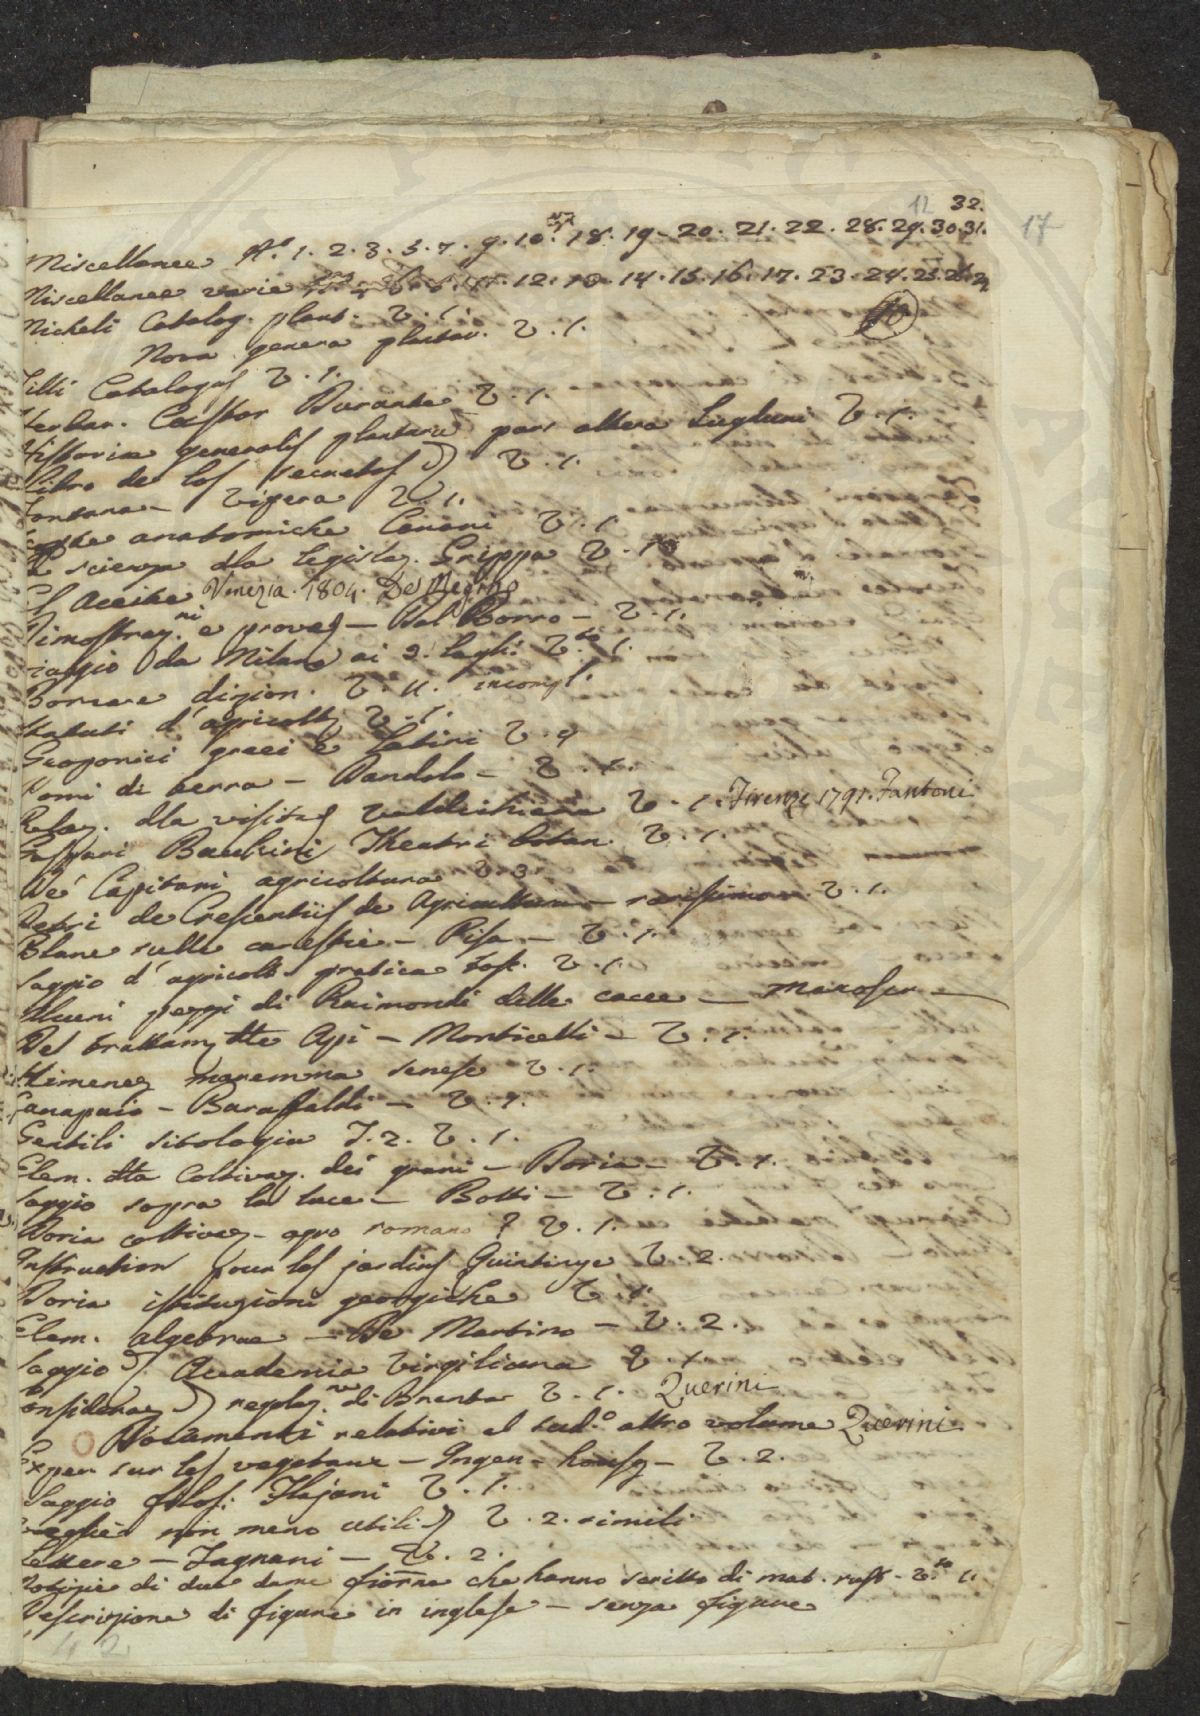 12 32. 17
Miscellanee N.º 1. 2. 3. 5. 7. 9. 10. 18. 19. 20. 21. 22. 28. 29. 30. 31.
Miscellanee varie 12. 13. 14. 15. 16. 17. 23. 24. 25. 26.
Micheli Catalog. plant. T. 1.
Nova genera plantar. T. 1.
Tilli Catalogus T. 1.
Herbar. Castor Durante T. 1.
Historiae generalis plantarum pars altera Lugduni T. 1.
Libro de los secretos T. 1.
Fontana - Vipera T. 1.
anatomiche Canani T. 1.
scienza dla legislaz. Grippa T. 10
Venezia. 1804. Del Negro
Dimostraz.ni e prove - Del Borro - T. 1.
Viaggio da Milano ai 3. laghi T.to 1.
Bomare dizion. T. 11. incompl.
Statuti d'agricolt. T. 1.
Geoponici greci e latini T. 9
Pomi di terra - Dandolo - T. 1.
Relaz. dla visita Valdichiana T. 1. Firenze 1791. Fantoni
Gaspari Bauhini Theatri botan. T. 1.
De' Capitani agricoltura T. 3.
Petri de Crescentiis de Agricultura - rarissimo - T. 1.
Blane sulle carestie - Pisa - T. 1.
Saggio d'agricolt. pratica tosc. T. 1.
Alcuni pezzi di Raimondi delle cacce - manoscr -
Del trattam. dlle Api - Monticelli - T. 1.
Ximenez maremma senese T. 1.
Canapaio - Baruffaldi - T. 1.
Gentili sitologia T. 2. T. 1.
Elem. dlla Coltivaz. dei grani - Doria - T. 1.
Saggio sopra la luce - Botti - T. 1.
Doria coltivaz - agro romano ? T. 1.
Instruction pour les jardins Quintinye T. 2.
Doria istituzioni georgiche T. 1.
Elem. algebrae - De Martino - T. 2.
Saggio Accademia Virgiliana T. 1
Consideraz regolaz.ne di Brenta T. 1. Querini
Documenti relativi al sud.º altro volume Querini
Exper sur les vegetaux - Ingen - housz - T. 2.
Saggio filos. Flajani T. 1.
Veglie non meno utili T. 2. simili
Lettere - Tagnani - T. 2.
Notizie di due dame fiorne che hanno scritto di mat. rust. - T.to 1.
Descrizione di figure in inglese - senza figure
42